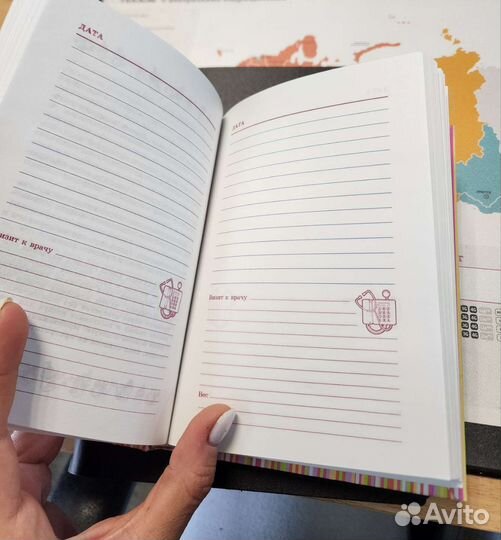 ДАТА
изит к врачу
ДАТА
Визит к врачу
Вес
Avito